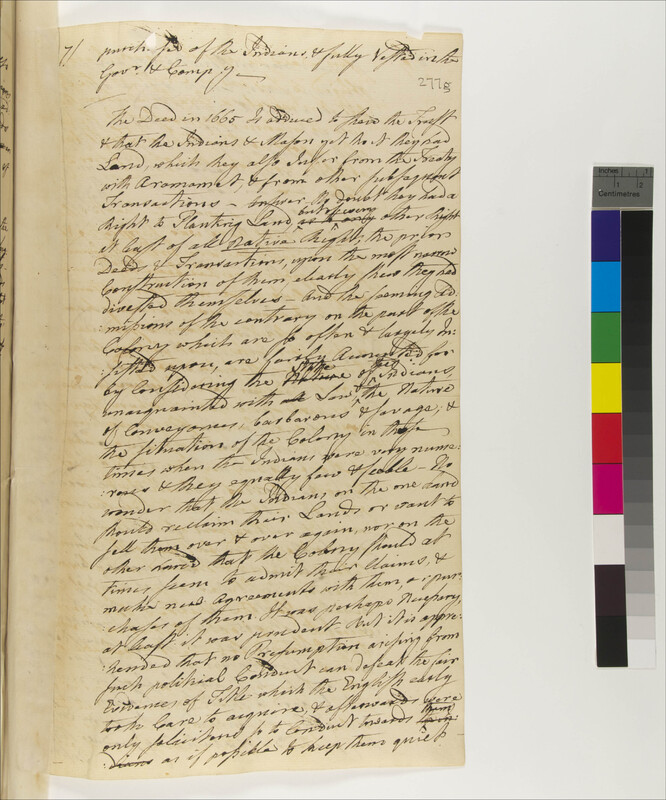 7/ purchased of the Indians, & fully Vested in the
Govr. & Compy.
277b
The Deed in 1665 is adduced to shew the Trust
& that the Indians & Mason yet had
Land, which they also Infer from the Treaty
with Aramamet & from other subsequent
Transactions — Answer, No doubt they had a
but of every
Right to Planting Land, as to any other Right
at least of all Native Right, the prior
Deeds & Transactions, upon the most narrow
Construction of them, clearly shew they had
divested themselves — And the seeming ad:
:missions of the contrary on the part of the
Colony which are so often & largely In:
:sisted upon, are fairly Accounted for
State
by Considering the Nature of the Indians,
unacquainted with Law & the Nature
of Conveyances, barbarous & savage, &
the situation of the Colony in those
times when the Indians were very nume:
:rous & they equally few & feeble — No
wonder that the Indians on the one hand
should reclaim their Lands or want to
sell them over & over again, nor on the
other hand that the Colony should at
times seem to admit their Claims, &
make new Agreements with them, or pur:
:chases of them. It was perhaps Necessary,
at least it was prudent But it is appre:
:hended that no Presumption arising from
such political Conduct can defeat the fair
Evidences of Title which the English early
took Care to acquire, & afterwards were
only solicitous so to Conduct towards them
:dians as if possible to keep them quiet
Inches
1
Centimetres
1
2